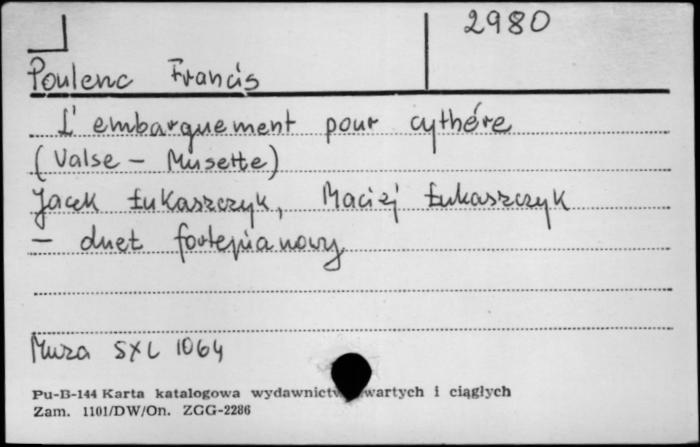 2980
Poulenc Francis
L'embarquement pour cythére
(Valse - Musette)
Jacek Łukaszczyk, Maciej Łukaszczyk
- duet fortepianowy
Muza SXL 1064
Pu-B-144 Karta katalogowa wydawnictw wartych i ciągłych
Zam. 1101/DW/On. ZGG-2286